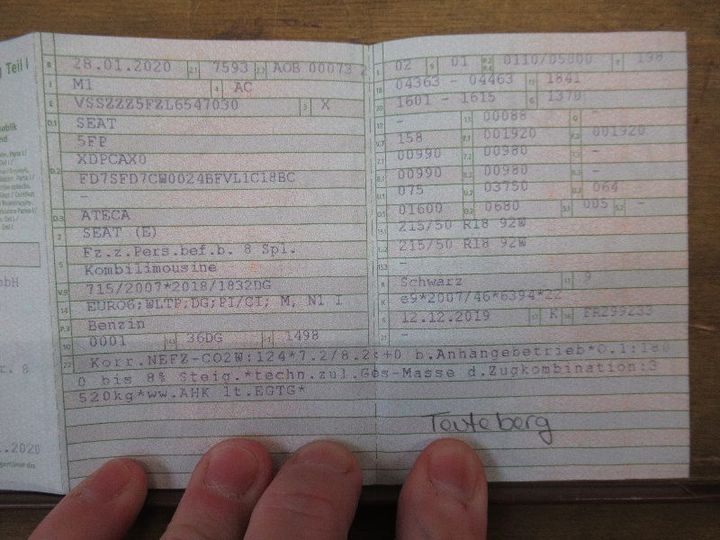 g Teil I
28.01.2020 7593 AOB 00073
M1 AC
VSSZZZ5FZL6547030 X
SEAT
5FP
XDPCAX0
FD7SFD7CW0024BFVL1C18BC
-
ATECA
SEAT (E)
Fz.z.Pers.bef.b. 8 Spl.
Kombilimousine
715/2007*2018/1832DG
EURO6;WLTP;DG;PI/CI; M, N1 I
Benzin
0001 36DG 1498
02 01 0110/05000 198
04363 - 04463 1841
1601 - 1615 1370
- 00088 -
158 001920 001920
00990 00980 -
00990 00980 -
075 03750 064
01600 0680 005 -
215/50 R18 92W
215/50 R18 92W
-
Schwarz 9
e9*2007/46*6394*22
12.12.2019 K FR299233
-
Korr.NEFZ-CO2W:124*7.2/8.2:+0 b.Anhangebetrieb*O.1:
0 bis 8% Steig.*techn.zul.Ges-Masse d.Zugkombination:3
520kg*ww.AHK lt.EGTG*
Teuteberg
.2020